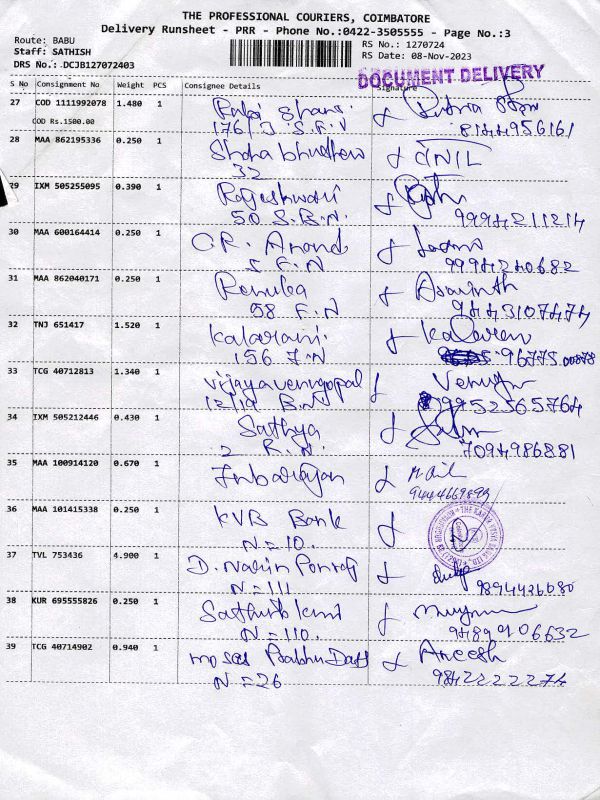 THE PROFESSIONAL COURIERS, COIMBATORE
Delivery Runsheet - PRR - Phone No.:0422-3505555 - Page No.:3
Route: BABU
Staff: SATHISH
DRS No.: .DCJB127072403
RS No.: 1270724
RS Date: 08-Nov-2023
DOCUMENT DELIVERY
S No Consignment No Weight PCS Consignee Details Signature
27 COD 1111992078 1.480 1
COD Rs.1500.00
176/3 S.F.N
8144956161
28 MAA 862195336 0.250 1
32
29 IXM 505255095 0.390 1 Rajeshwari
50 S.B.N. 9994211214
30 MAA 600164414 0.250 1 C.R. Anand
5 F.N 9994240682
31 MAA 862040171 0.250 1 Renuka Aswinth
58 F.N 9443107474
32 TNJ 651417 1.520 1 Kalarani.
156 7.N 96775 00878
33 TCG 40712813 1.340 1 Vijayavenugopal
12/19 B.N 9952565764
34 IXM 505212446 0.430 1 Sathya
2 R.N. 7094986881
35 MAA 100914120 0.670 1 Inbarajan
36 MAA 101415338 0.250 1 KVB Bank
N=10.
37 TVL 753436 4.900 1 D. Navin Ponraj
N=111 9894436080
38 KUR 695555826 0.250 1
N=110. 9489906632
39 TCG 40714902 0.940 1 moses Prabhu Dass Aneesh
N=26 9842222274